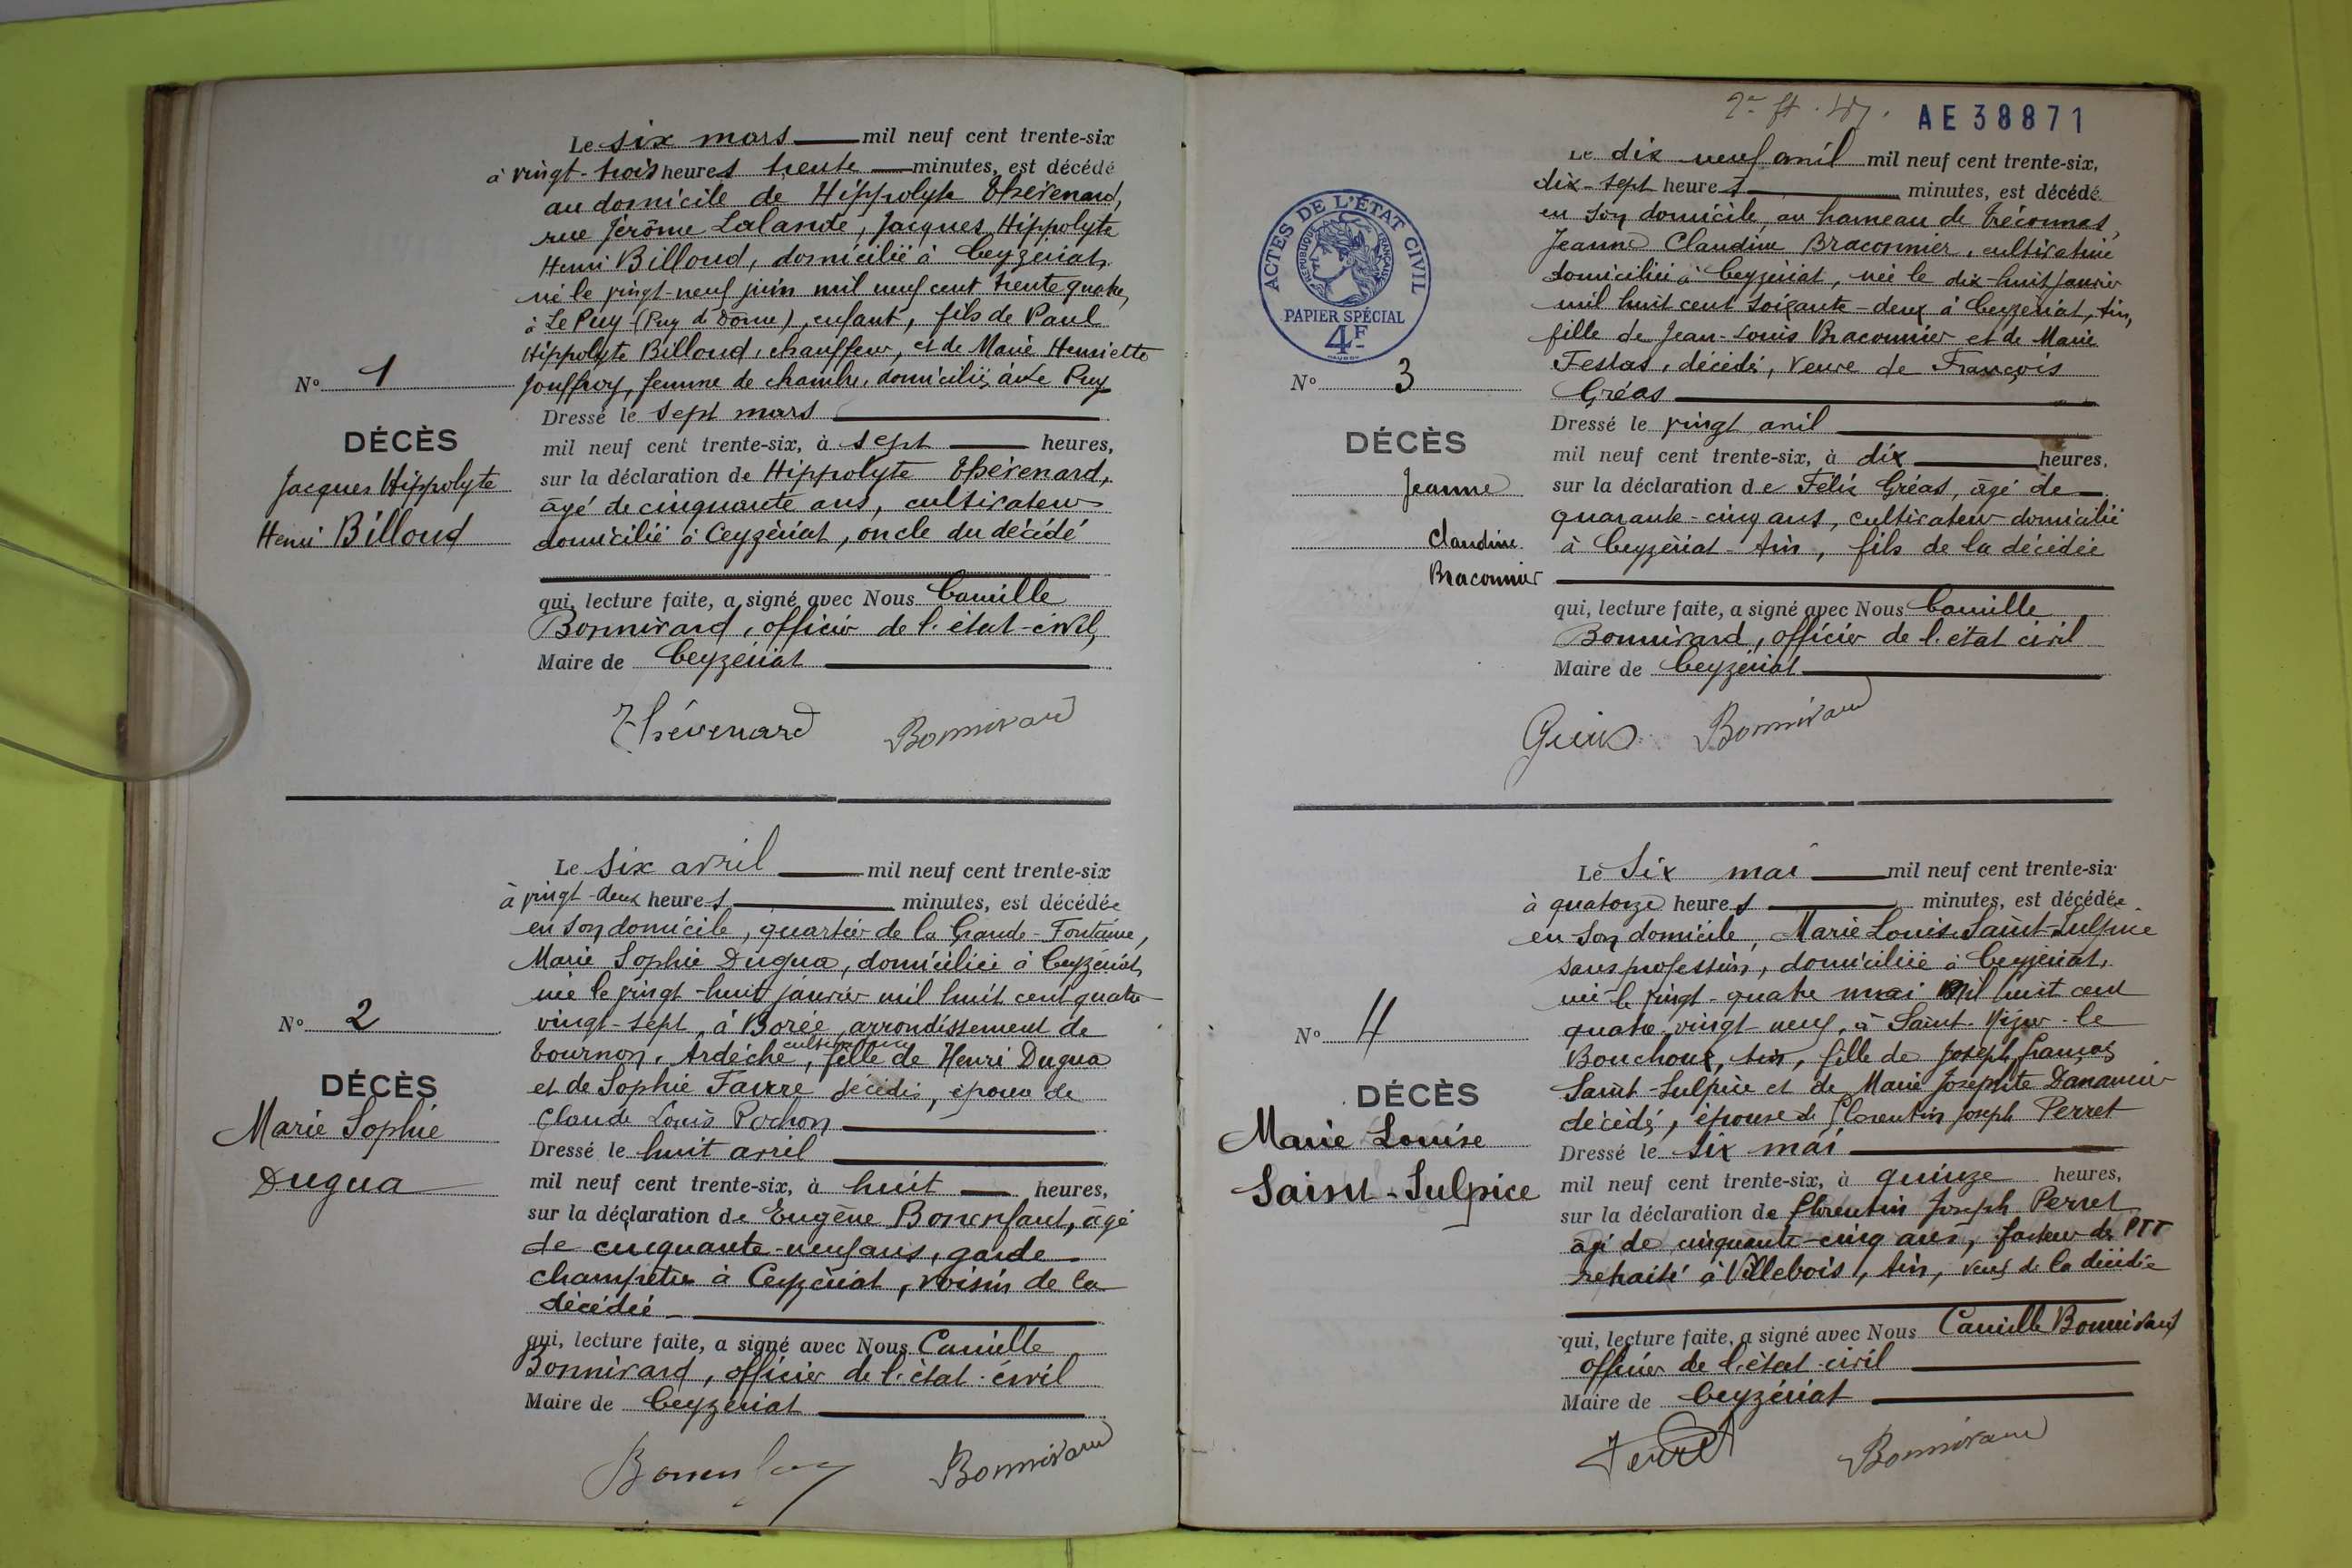 Le six mars mil neuf cent trente-six
à vingt-trois heures trente minutes, est décédé
au domicile de Hippolyte Thévenard,
rue Jérôme Lalande, Jacques Hippolyte
Henri Billoud, domicilié à Ceyzériat,
né le vingt-neuf juin mil neuf cent trente quatre,
à Le Puy (Puy de Dôme), enfant, fils de Paul
Hippolyte Billoud, chauffeur, et de Marie Henriette
Jouffroy, femme de chambre, domiciliés à Le Puy
N° 1
DÉCÈS
Jacques Hippolyte
Henri Billoud
Dressé le sept mars
mil neuf cent trente-six, à sept heures,
sur la déclaration de Hippolyte Thévenard,
âgé de cinquante ans, cultivateur
domicilié à Ceyzériat, oncle du décédé
qui, lecture faite, a signé avec Nous Camille
Bonnivard, officier de l'état-civil,
Maire de Ceyzériat
Thévenard Bonnivard
Le six avril mil neuf cent trente-six
à vingt-deux heures minutes, est décédée
en son domicile, quartier de la Grande-Fontaine,
Marie Sophie Dugua, domiciliée à Ceyzériat,
née le vingt-huit janvier mil huit cent quatre
vingt-sept, à Borée, arrondissement de
Tournon, Ardèche, cultivatrice, fille de Henri Dugua
et de Sophie Favre décédés, épouse de
Claude Louis Pochon
N° 2
DÉCÈS
Marie Sophie
Dugua
Dressé le huit avril
mil neuf cent trente-six, à huit heures,
sur la déclaration de Eugène Bonenfant, âgé
de cinquante-neuf ans, garde
champêtre à Ceyzériat, voisin de la
décédée
qui, lecture faite, a signé avec Nous Camille
Bonnivard, officier de l'état-civil
Maire de Ceyzériat
Bonnivard
AE38871
ACTES DE L'ÉTAT CIVIL
RÉPUBLIQUE FRANÇAISE
PAPIER SPÉCIAL
4F
Le dix neuf avril mil neuf cent trente-six,
dix-sept heures minutes, est décédé
en son domicile, au hameau de Tréconnas,
Jeanne Claudine Braconnier, cultivatrice
domiciliée à Ceyzériat, née le dix-huit janvier
mil huit cent soixante-deux à Ceyzériat, Ain,
fille de Jean-Louis Braconnier et de Marie
Festas, décédés, veuve de François
Gréas
N° 3
DÉCÈS
Jeanne
Claudine
Braconnier
Dressé le vingt avril
mil neuf cent trente-six, à dix heures,
sur la déclaration de Félix Gréas, âgé de
quarante-cinq ans, cultivateur domicilié
à Ceyzériat-Ain, fils de la décédée
qui, lecture faite, a signé avec Nous Camille
Bonnivard, officier de l'état civil
Maire de Ceyzériat
Bonnivard
Le Six mai mil neuf cent trente-six
à quatorze heures minutes, est décédée
en son domicile, Marie Louise Saint-Sulpice
sans profession, domiciliée à Ceyzériat,
née le vingt-quatre mai mil huit cent
quatre-vingt-neuf, à Saint-Nizier-le
Bouchoux, Ain, fille de Joseph François
Saint-Sulpice et de Marie Josephte
décédés, épouse de Florentin Joseph Perret
N° 4
DÉCÈS
Marie Louise
Saint-Sulpice
Dressé le six mai
mil neuf cent trente-six, à quinze heures,
sur la déclaration de Florentin Joseph Perret
âgé de cinquante-cinq ans, facteur des PTT
retraité à Villebois, Ain, veuf de la décédée
qui, lecture faite, a signé avec Nous Camille Bonnivard
officier de l'état-civil
Maire de Ceyzériat
Perret Bonnivard